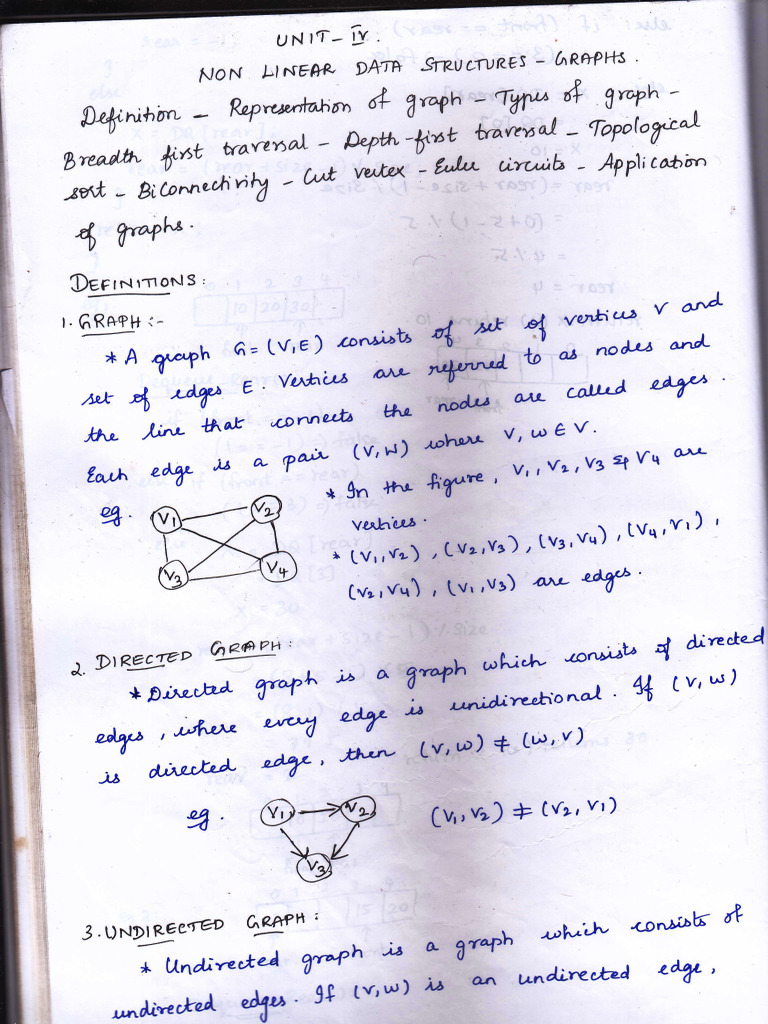 UNIT- IV.
NON LINEAR DATA STRUCTURES - GRAPHS.
Definition - Representation of graph - Types of graph -
Breadth first traversal - Depth-first traversal - Topological
sort - BiConnectivity - Cut vertex - Euler circuits - Application
of graphs.
DEFINITIONS:
1. GRAPH:-
* A graph G=(V,E) consists of set of vertices V and
set of edges E. Vertices are referred to as nodes and
the line that connects the nodes are called edges.
Each edge is a pair (V,W) where V, W ∈ V.
eg.
V1
V2
V3
V4
* In the figure, V1, V2, V3 & V4 are
vertices.
* (V1,V2), (V2,V3), (V3,V4), (V4,V1),
(V2,V4), (V1,V3) are edges.
2. DIRECTED GRAPH:
* Directed graph is a graph which consists of directed
edges, where every edge is unidirectional. If (V,W)
is directed edge, then (V,W) ≠ (W,V)
eg.
V1
V2
V3
(V1,V2) ≠ (V2,V1)
3. UNDIRECTED GRAPH:
* Undirected graph is a graph which consists of
undirected edges. If (V,W) is an undirected edge,